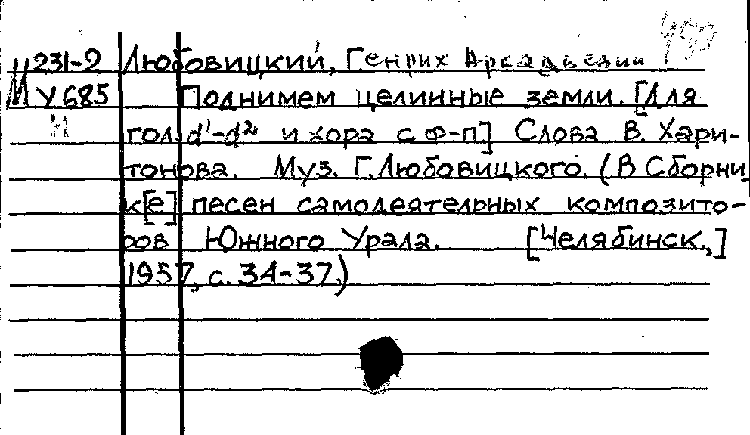 М 231-2 Любовицкий, Генрих Аркадьевич
У 685 Поднимем целинные земли. [Для
гол. d¹-d² и хора с ф-п] Слова В. Хари-
тонова. Муз. Г. Любовицкого. (В Сборни
к[е] песен самодеятельных композито-
ров Южного Урала. [Челябинск,]
1957, с. 34-37.)